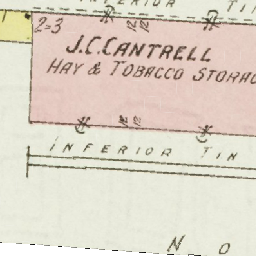 INFERIOR TIN
2=3
J.C. CANTRELL
HAY & TOBACCO STORAG
12 12
INFERIOR TIN
NO